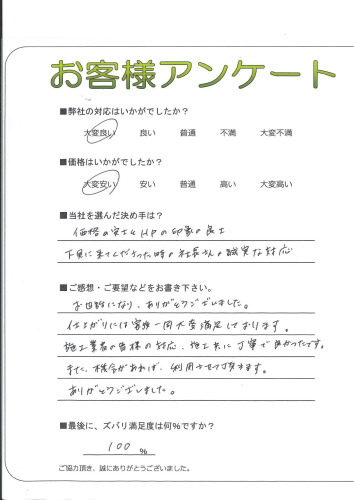 お客様アンケート
■弊社の対応はいかがでしたか？
大変良い 良い 普通 不満 大変不満
■価格はいかがでしたか？
大変安い 安い 普通 高い 大変高い
■当社を選んだ決め手は？
価格の安さとHPの印象の良さ
下見に来てくださった時の社長さんの誠実な対応
■ご感想・ご要望などをお書き下さい。
お世話になり、ありがとうございました。
仕上がりには家族一同大変満足しております。
施工業者の皆様の対応、施工共に丁寧で良かったです。
また、機会があれば、利用させて頂きます。
ありがとうございました。
■最後に、ズバリ満足度は何％ですか？
100 %
ご協力頂き、誠にありがとうございました。